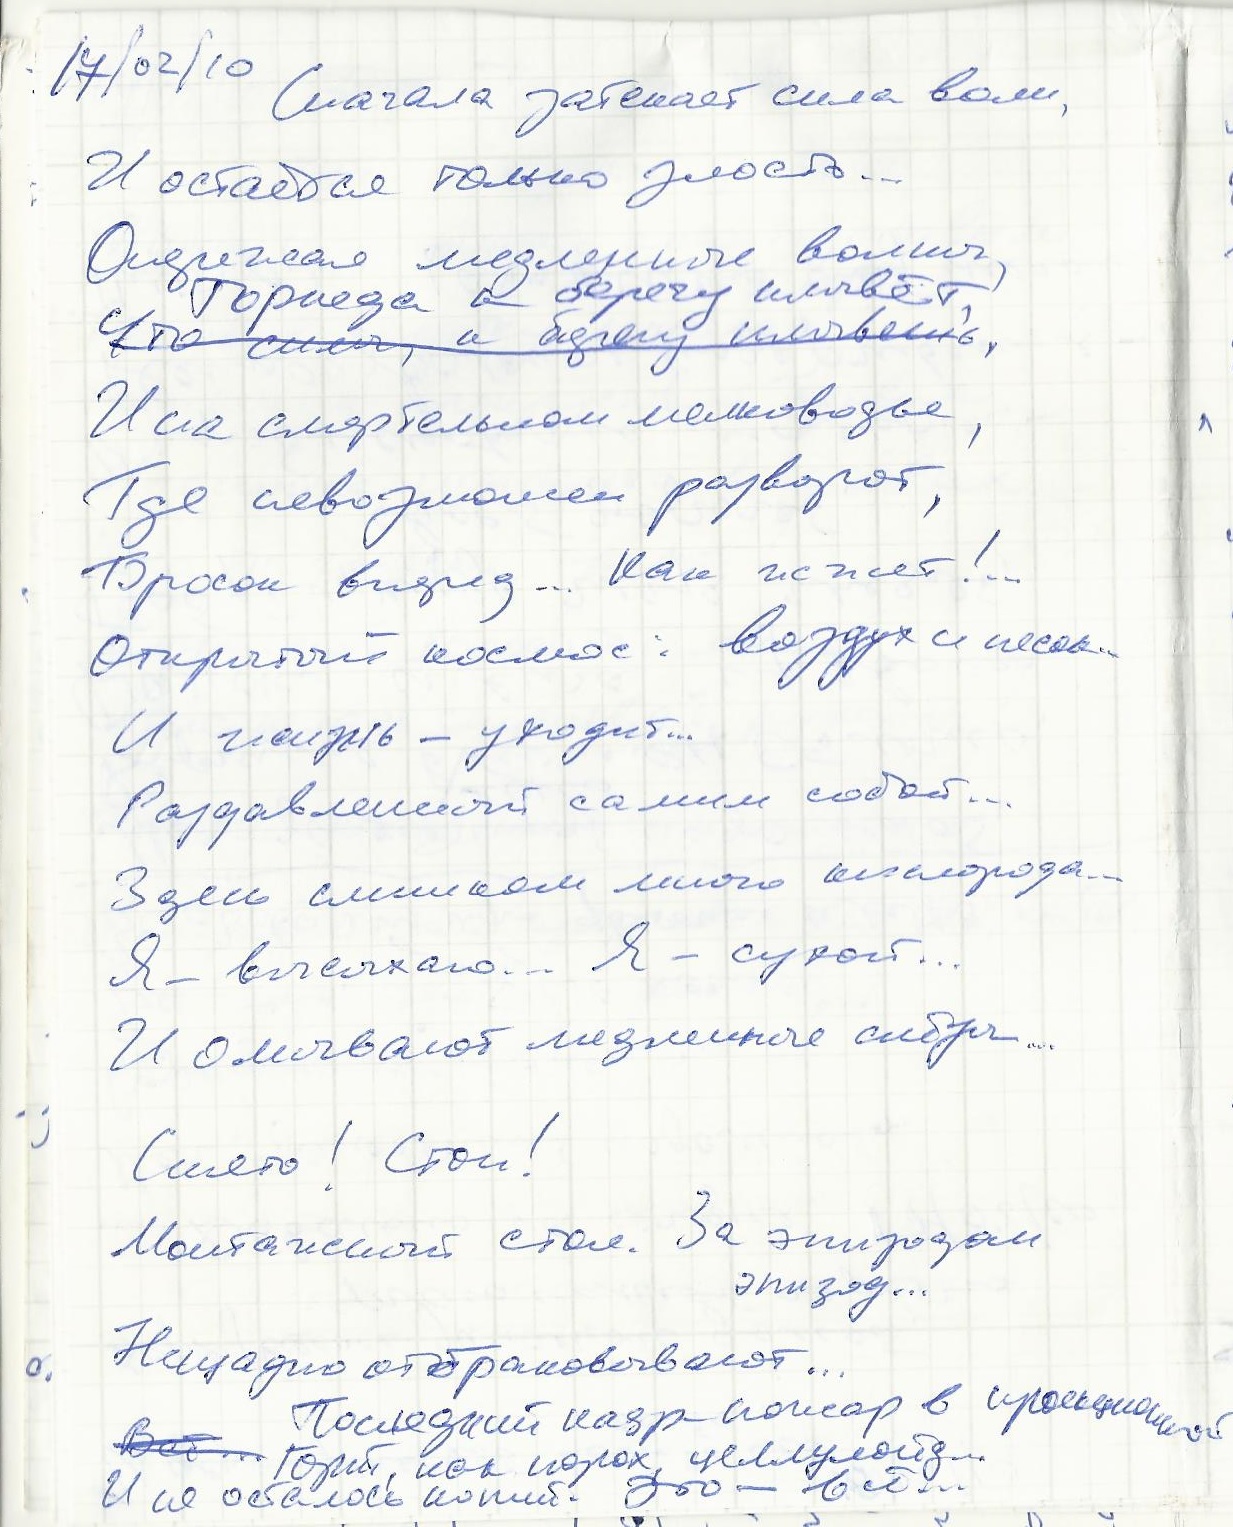 17/02/10 Сначала затекает сила воли,
И остаётся только злость...
Опережая медленные волны,
Торпеда к берегу плывёт,
Что силы, к берегу плывешь,
И на смертельном мелководье,
Где невозможен разворот,
Бросок вперед... Как жжет!...
Открытый космос: воздух и песок...
И жизнь – уходит...
Раздавленный самим собой...
Здесь слишком много кислорода...
Я – высыхаю... Я – сухой...
И омывают медленные
Снято! Стоп!
Монтажный стол. За эпизодом
эпизод...
Нещадно отбраковывают...
Последний кадр – пожар в проекционной
Всё... Горит, как порох, целлулоид...
И не осталось копий. Это – всё...